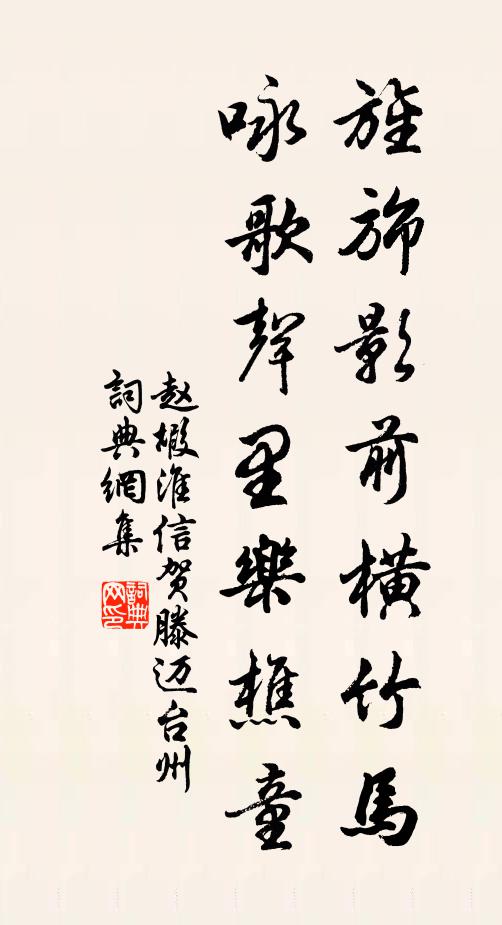 旌旆影前橫竹馬
咏歌聲里樂樵童
赵嘏淮信贺滕迈台州
詞典網集
詞典网印